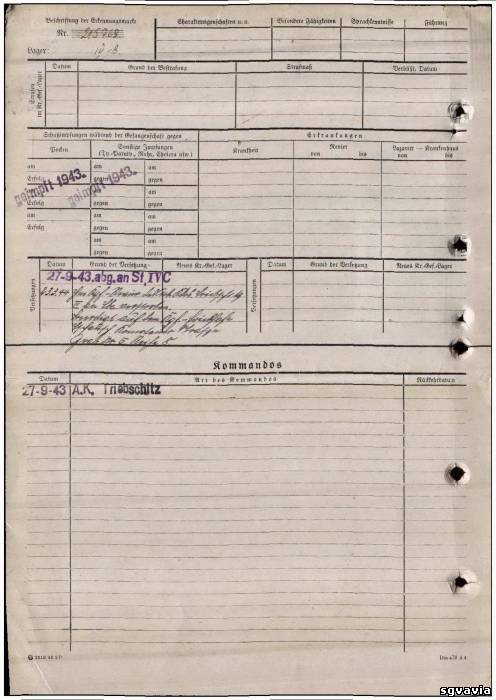 Beschriftung der Erkennungsmarke
Nr. 215768
Lager: IV B.
Charaktereigenschaften u. a.
Besondere Fähigkeiten
Sprachkenntnisse
Führung
Strafen im Kr.-Gef.-Lager
Datum
Grund der Bestrafung
Strafmaß
Verbüßt, Datum
Schutzimpfungen während der Gefangenschaft gegen
Erkrankungen
Pocken
Sonstige Impfungen
(Ty.-Paraty., Ruhr, Cholera usw.)
Krankheit
Revier
von bis
Lazarett — Krankenhaus
von bis
am am
Erfolg gegen
geimpft 1943.
geimpft 1943.
am am
Erfolg gegen
am am
Erfolg gegen
am
gegen
am
gegen
Versetzungen
Datum
Grund der Versetzung
Neues Kr.-Gef.-Lager
Versetzungen
Datum
Grund der Versetzung
Neues Kr.-Gef.-Lager
27-9-43.abg.an St.IVC
verstorben.
Beerdigt auf dem
Grab No 5 Reihe 5
Kommandos
Datum
Art des Kommandos
Rückkehrdatum
27-9-43 A.K. Triebschitz
Din 476 A 4
sgvavia